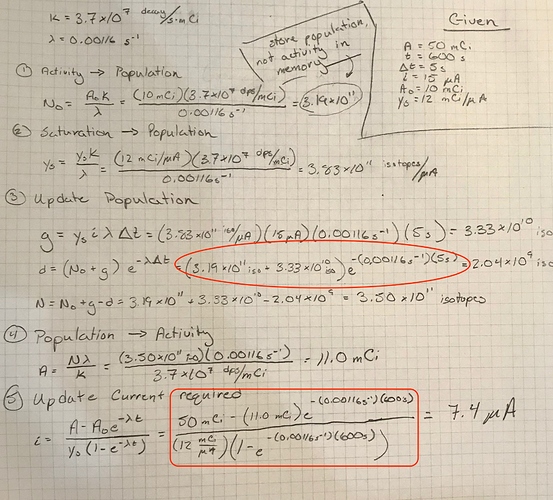 K = 3.7×10⁷ decay/s·mCi
λ = 0.00116 s⁻¹
store population,
not activity in
memory
Given
A = 50 mCi
t = 600s
Δt = 5s
i = 15 μA
A₀ = 10 mCi
Ys = 12 mCi/μA
① Activity → Population
N₀ = A₀K/λ = (10 mCi)(3.7×10⁷ dps/mCi)/0.00116 s⁻¹ = 3.19×10¹¹
② Saturation → Population
ys = YsK/λ = (12 mCi/μA)(3.7×10⁷ dps/mCi)/0.00116 s⁻¹ = 3.83×10¹¹ isotopes/μA
③ Update Population
g = ys i λ Δt = (3.83×10¹¹ iso/μA)(15 μA)(0.00116 s⁻¹)(5s) = 3.33×10¹⁰ iso
d = (N₀+g) e^-λΔt = (3.19×10¹¹ iso + 3.33×10¹⁰ iso) e^-(0.00116 s⁻¹)(5s) = 2.04×10⁹ iso
N = N₀+g-d = 3.19×10¹¹ + 3.33×10¹⁰ - 2.04×10⁹ = 3.50×10¹¹ isotopes
④ Population → Activity
A = Nλ/K = (3.50×10¹¹ iso)(0.00116 s⁻¹)/3.7×10⁷ dps/mCi = 11.0 mCi
⑤ Update Current required
i = A - A₀e^-λt / Ys(1-e^-λt) = 50 mCi - (11.0 mCi)e^-(0.00116 s⁻¹)(600s) / (12 mCi/μA)(1-e^-(0.00116 s⁻¹)(600s)) = 7.4 μA